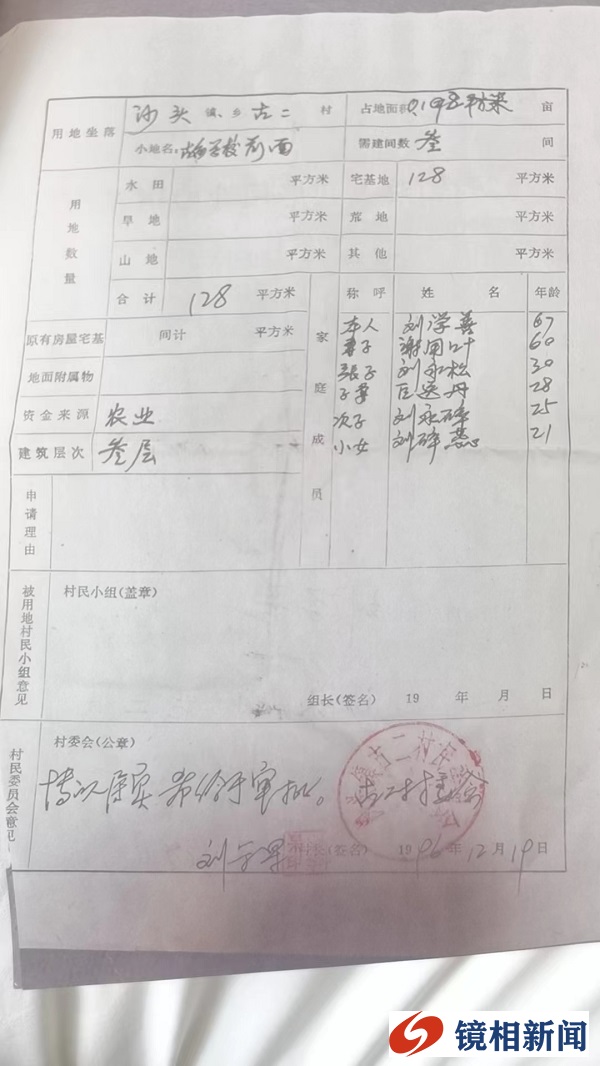 用地坐落 沙头 镇、乡 古二 村 占地面积 0.198 亩
小地名: 前面 需建间数 叁 间
用地数量 水田 平方米 宅基地 128 平方米
旱地 平方米 荒地 平方米
山地 平方米 其他 平方米
合计 128 平方米
家庭成员 称呼 姓名 年龄
原有房屋宅基 间计 平方米
本人 刘学善 67
妻子 谢用叶 60
地面附属物
长子 刘永松 30
子 丹 28
资金来源 农业
次子 刘永 25
建筑层次 叁层
小女 刘 21
申请理由
被用地村民小组意见
村民小组(盖章)
组长(签名) 19 年 月 日
村民委员会意见
村委会(公章)
情况属实 希给予审批。
古二村
刘 村长(签名) 1996年12月19日
镜相新闻